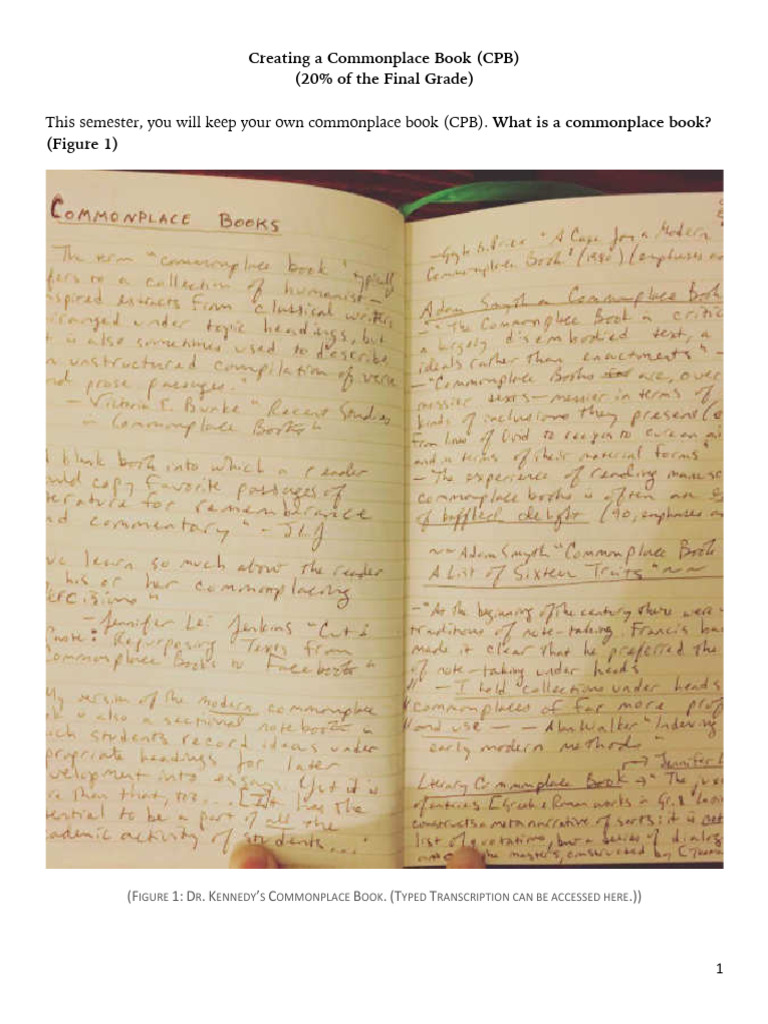 Creating a Commonplace Book (CPB)
(20% of the Final Grade)
This semester, you will keep your own commonplace book (CPB). What is a commonplace book?
(Figure 1)
COMMONPLACE BOOKS
The term "commonplace book" typically
fers to a collection of humanist-
spired extracts from classical writers
rranged under topic headings, but
t is also sometimes used to describe
n unstructured compilation of verse
nd prose passages."
- Victoria E. Burke "Recent Studies
in Commonplace Books"
blank book into which a reader
uld copy favorite passages of
terature for remembrance
nd commentary" - JLJ
ve learn so much about the reader
his or her commonplacing
"
- Jennifer Lei Jenkins "Cut &
Repurposing Texts from
ommonplace Books to Facebook"
My version of the modern commonplace
is also a sectional notebook in
ich students record ideas under
propriate headings for later
velopment into essays. Yet it is
re than that, too... [I]t has the
tential to be a part of all the
ademic activity of students..."
"A Case for a Modern
Commonplace Book" (emphases
Adam Smyth on Commonplace Book
- "The Commonplace Book is critic
a largely disembodied text, a
ideals rather than enactments" -
- "Commonplace Books are, over
messier texts - messier in terms of
kinds of inclusions they present (
From love of God to recipes to cure an
and in terms of their material forms"
- "The experience of reading
commonplace books is often one
of baffled delight (90, emphases
Adam Smyth "Commonplace Book
A List of Sixteen Traits"
- "At the beginning of the century there were
traditions of note-taking. Francis
made it clear that he preferred the
of note-taking under heads
- I hold "collections under heads
commonplaces of far more prof
and use - - Alan Walker "Indexing
early modern methods"
Jennifer
Literary Commonplace Book → "The
of entries [Greek & Roman works in
constructs a meta narrative of sorts: it is
list of quotations, but a series of dialog
the masters, constructed by
(FIGURE 1: DR. KENNEDY'S COMMONPLACE BOOK. (TYPED TRANSCRIPTION CAN BE ACCESSED HERE.))
1